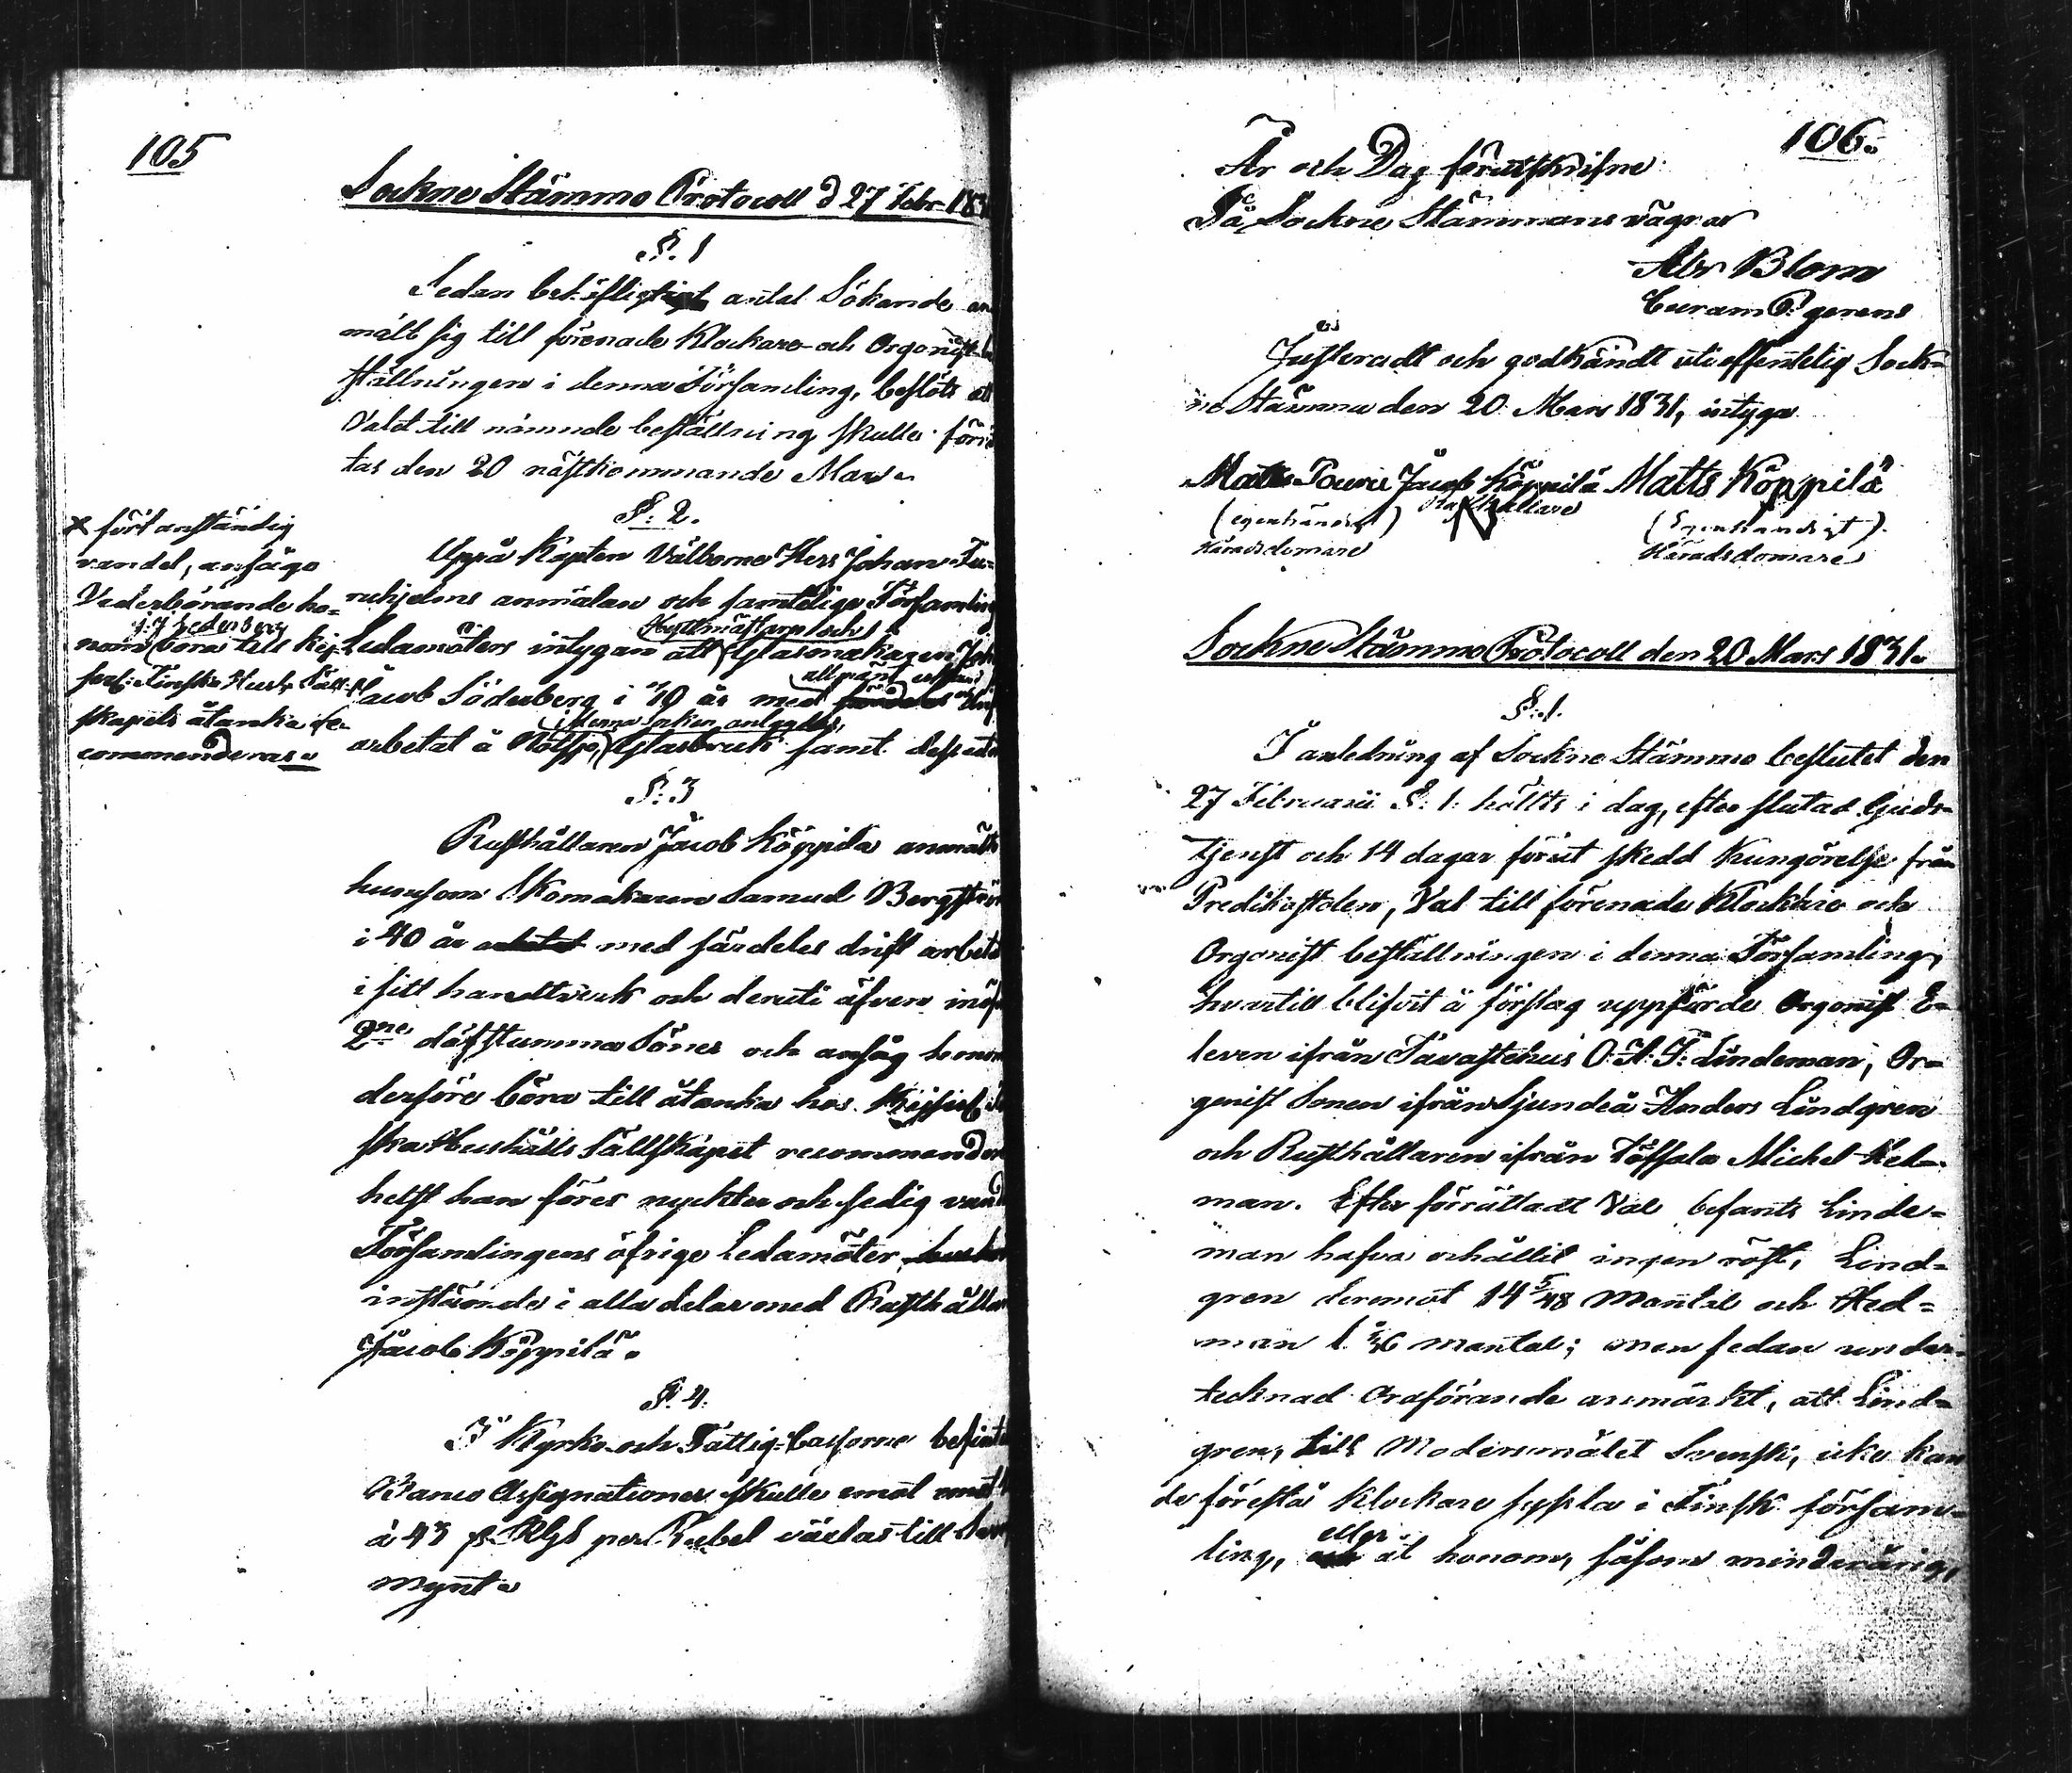 105
Sockne Stämmo Protocoll d 27 Febr. 183
§. 1
Sedan behöfligt antal Sökande an
mält sig till förenade Klockare och Orgonist be
ställningen i denna Församling, beslöts att
Valet till nämnde beställning skulle förrät
tas den 20 nästkommande Mars.
§: 2.
Uppå Kapten Välborne Herr Johan Fu-
ruhjelms anmälan och samtelige Församlings
Ledamöters intygan att Hyttmästaren och Glasmakaren Joh
Jacob Söderberg i 40 år med allmänt
arbetat å Notsjö i denna Socken anlagde Glasbruk samt dessutom
x fört anständig
vandel, ansågo
Vederbörande ho-
nom Söderberg böra till Kej-
serl: Finska Hush. Säll-
skapets åtanka re-
commenderas.
§: 3
Rusthållaren Jacob Köppilä anmälte
hurusom Skomakaren Samuel Bergström
i 40 år med särdeles drift arbetat
i sitt handtverk och deruti äfven inöf
2ne döfstumma Söner och ansåg honom
derföre böra till åtanka hos Kejserl.
ska Hushålls Sällskapet recommenderas
helst han förer nyckter och sedig vand
Församlingens öfrige Ledamöter
instämde i alla delar med Rusthållar
Jacob Köppilä.
§. 4.
I Kyrko och Fattig-Cassorne befint
Banco Assignationer skulle emot
à 43 s. RGS per Rubel växlas till
mynt.
106.
År och Dag förutskrifne
På Sockne Stämmans vägnar
Abr Blom
Curam P. gerens
Justeradt och godkändt uti offentelig Sock-
ne Stämma den 20 Mars 1831, intyga
Matts Pouru Jacob Köppilä Matts Köppilä
(egenhändigt) Rusthållare (Egenhändigt).
Häradsdomare Häradsdomare
Sockne Stämmo Protocoll den 20 Mars 1831.
§: 1.
I anledning af Sockne Stämmo beslutet den
27 Februarii §: 1: hölts i dag, efter slutad Guds-
tjenst och 14 dagar förut skedd Kungörelse från
Predikostolen, Val till förenade Klockare och
Orgonist beställningen i denna Församling,
hvartill blifvit å förslag uppförde Orgonist E-
leven ifrån Tavastehus O. A. F. Lindeman, Or-
gonist Sonen ifrån Sjundeå Anders Lindgren
och Rusthållaren ifrån Töfsala Michel Hed-
man. Efter förrättadt Val befants Linde-
man hafva erhållit ingen röst, Lind-
gren deremot 14 5/48 Mantal och Hed-
man 1 mantal; men sedan under-
tecknad Ordförande anmärkt, att Lind-
gren, till Modersmålet Svensk, icke kan
de förestå Klockare syssla i Finsk försam-
ling, eller åt honom, såsom minderårig,